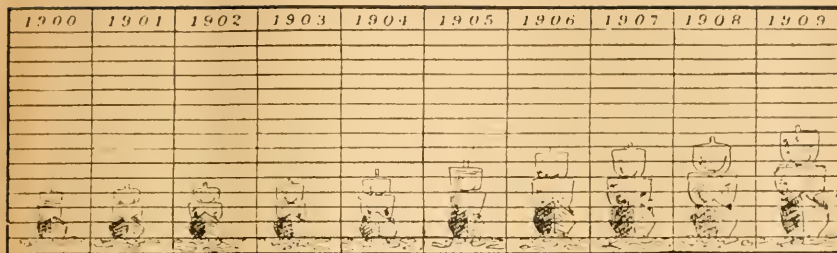 1900 1901 1902 1903 1904 1905 1906 1907 1908 1909